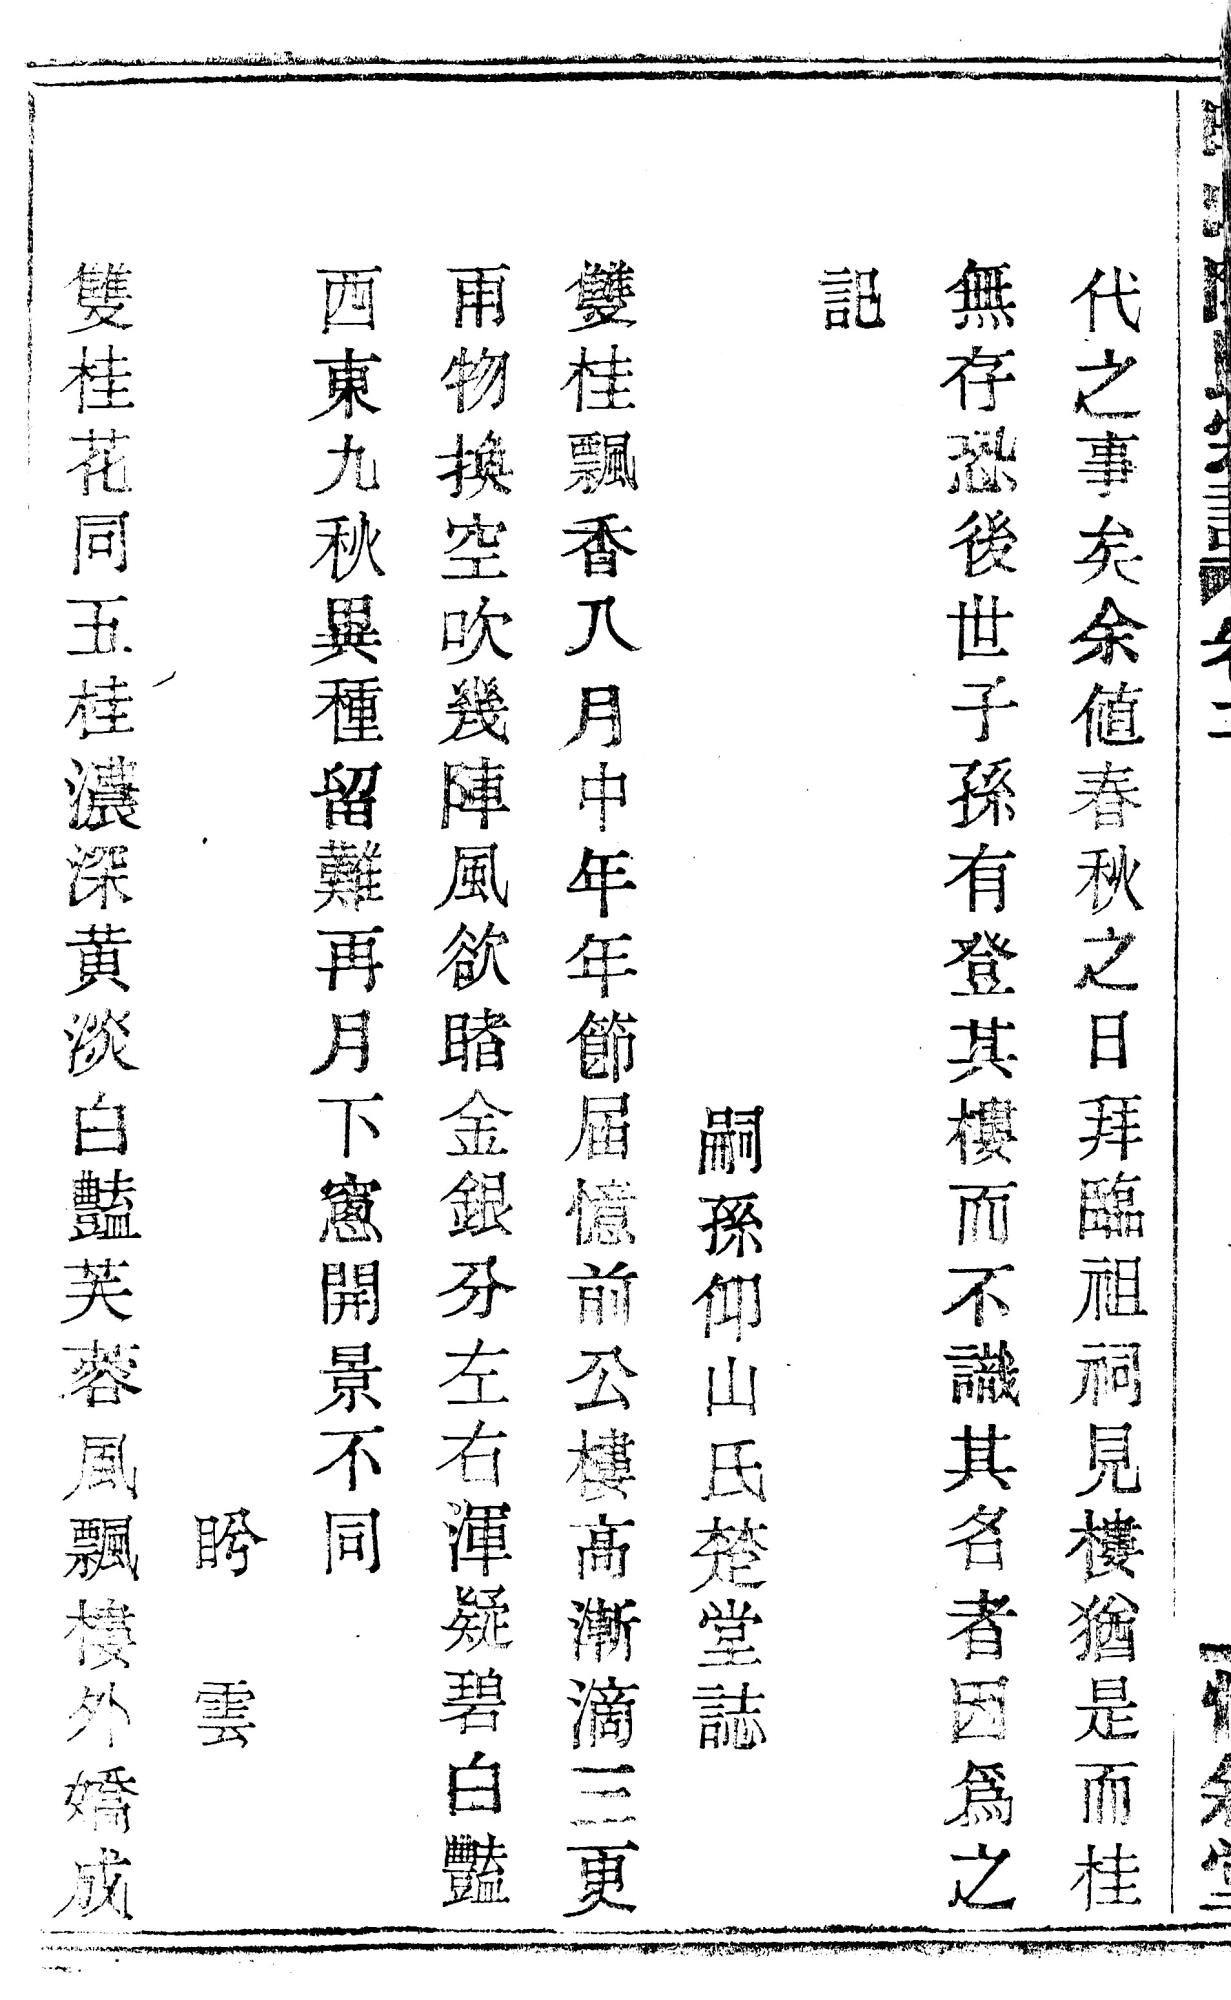 代之事矣余值春秋之日拜臨祖祠見樓猶是而桂
無存恐後世子孫有登其樓而不識其名者因爲之
記
嗣孫仰山氏楚堂誌
雙桂飄香八月中年年節届憶前公樓高漸滴三更
雨物換空吹幾陣風欲睹金銀分左右渾疑碧白豔
西東九秋異種留難再月下窻開景不同
盻雲
雙桂花同五桂濃深黄淡白豔芙蓉風飄樓外嬌成